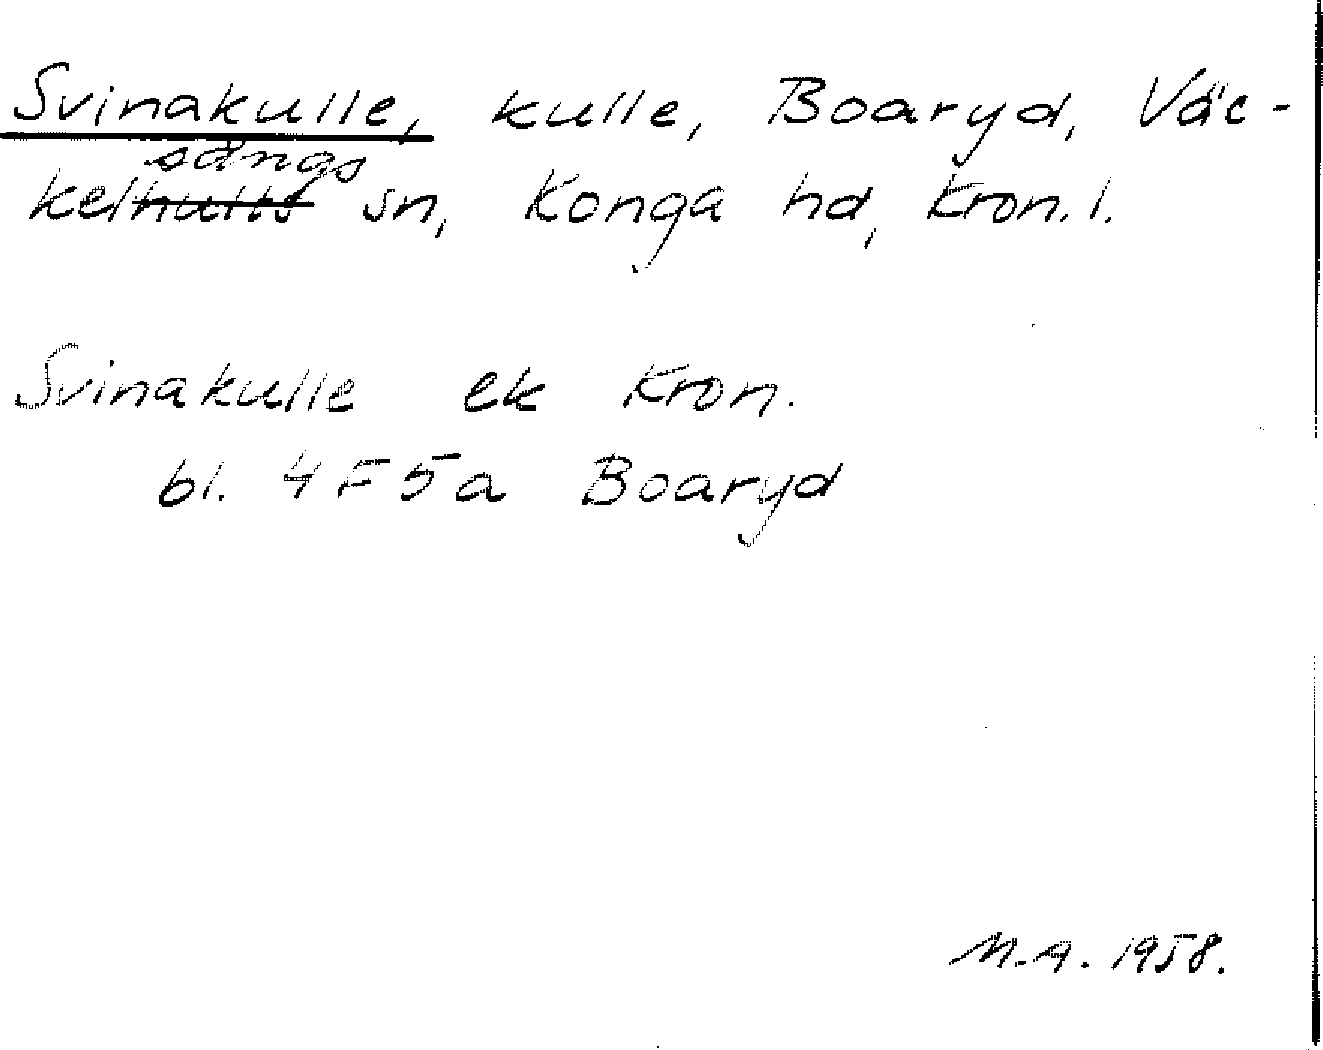 Svinakulle, kulle, Boaryd, Väc-
sångs
kelhults sn, Konga hd, Kron. l.
Svinakulle ek Kron.
bl. 4F5a Boaryd
M.A. 1958.